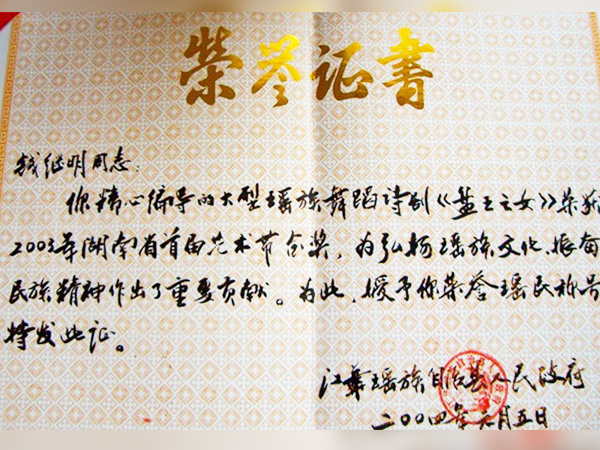 荣誉证书
钱继明同志:
你精心编导的大型瑶族舞蹈诗剧《盘王之女》荣获
2003年湖南省首届艺术节金奖,为弘扬瑶族文化、振奋
民族精神作出了重要贡献。为此,授予你荣誉瑶民称号
特发此证。
江华瑶族自治县人民政府
二〇〇四年元月五日